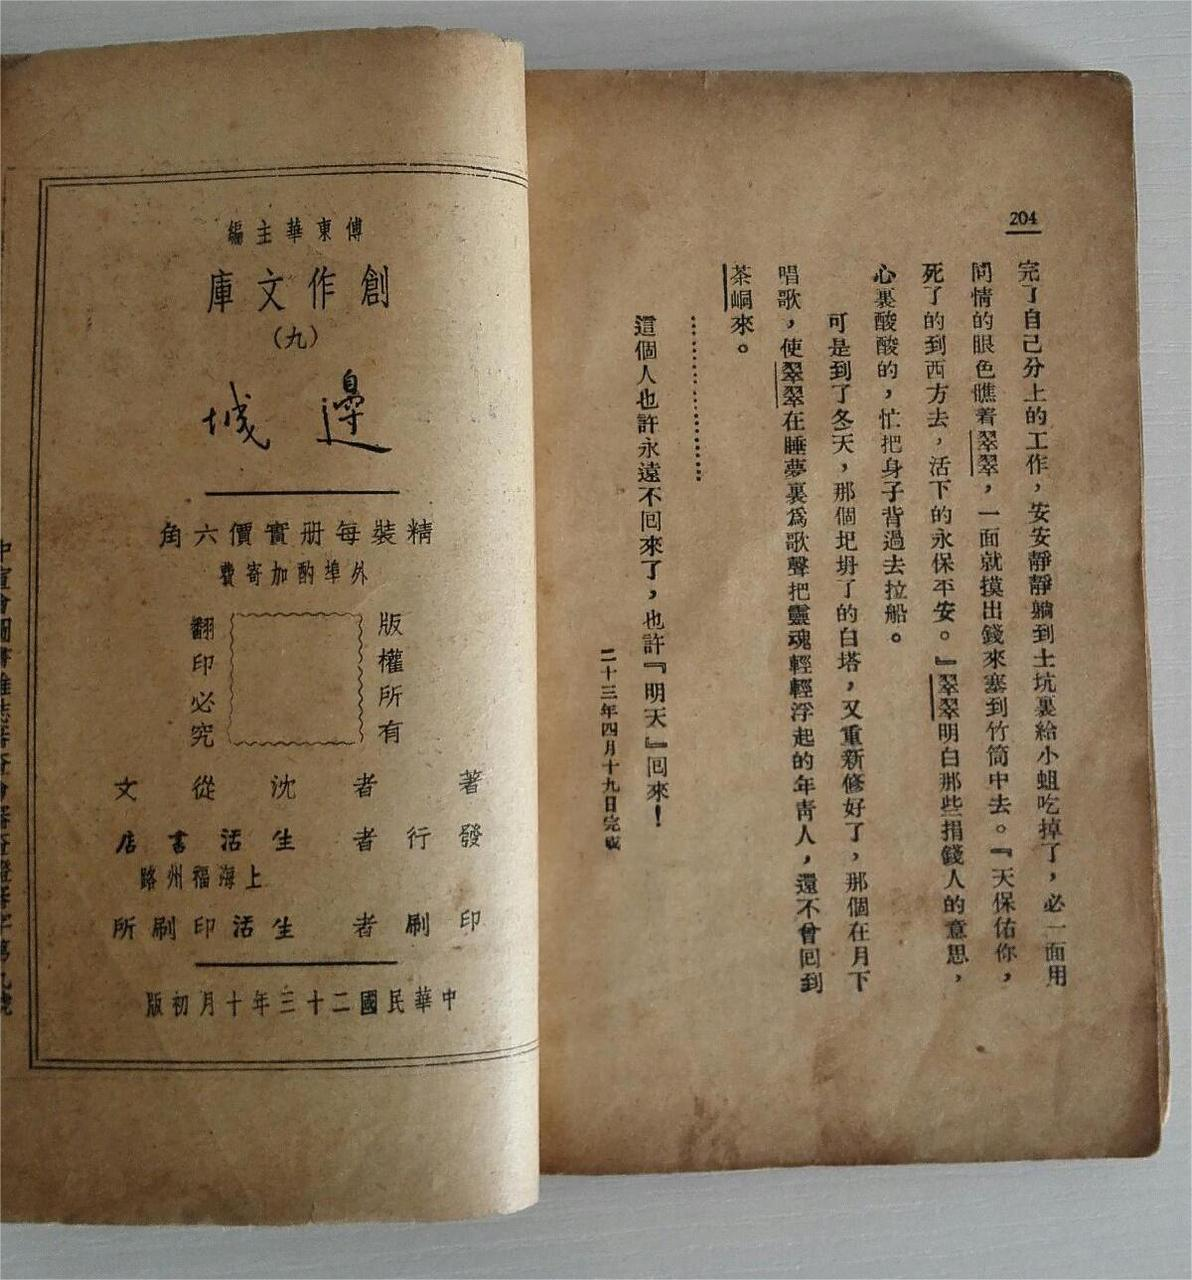 204
完了自己分上的工作，安安靜靜躺到土坑裏給小蛆吃掉了，必一面用
問情的眼色瞧着翠翠，一面就摸出錢來塞到竹筒中去。『天保佑你，
死了的到西方去，活下的永保平安。』翠翠明白那些捐錢人的意思，
心裏酸酸的，忙把身子背過去拉船。
可是到了冬天，那個圮坍了的白塔，又重新修好了，那個在月下
唱歌，使翠翠在睡夢裏爲歌聲把靈魂輕輕浮起的年青人，還不曾回到
茶峒來。
……………………
這個人也許永遠不回來了，也許『明天』回來！
二十三年四月十九日完
傅東華主編
創作文庫
（九）
邊城
精裝每册實價六角
外埠酌加寄費
版權所有
翻印必究
著者 沈從文
發行者 生活書店
上海福州路
印刷者 生活印刷所
中華民國二十三年十月初版